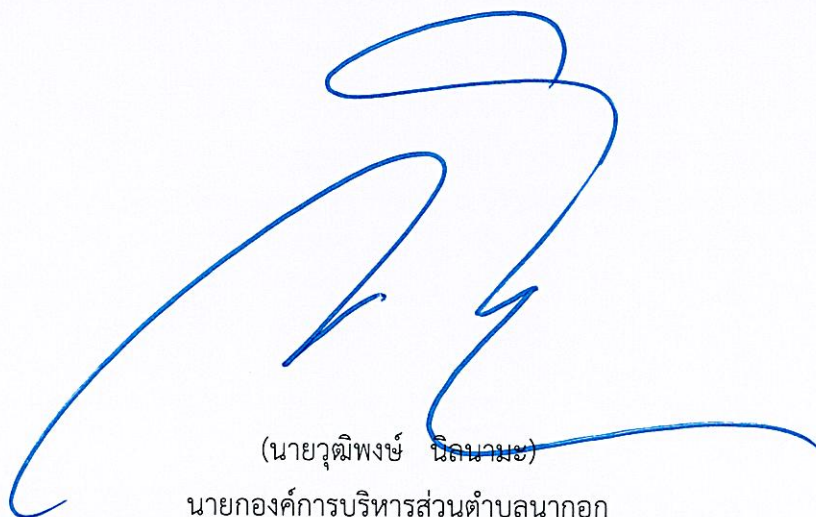 (นายวุฒิพงษ์ นิลนามะ)
นายกองค์การบริหารส่วนตำบลนากอก